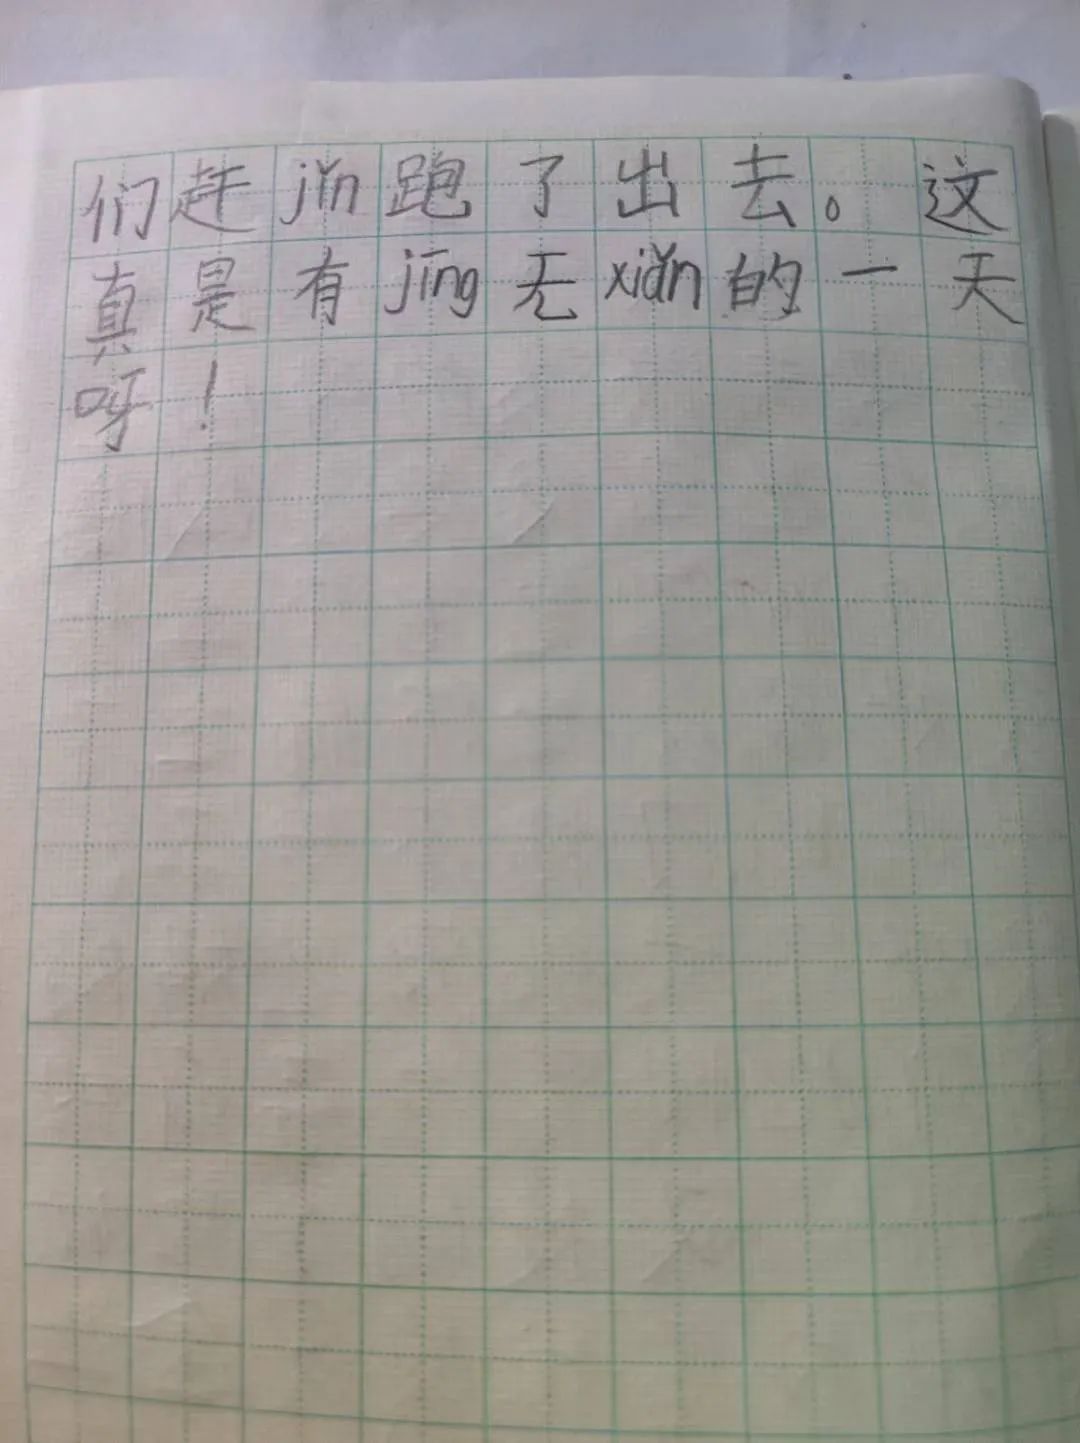 们赶jǐn跑了出去。这
真是有jīng无xiǎn的一天
呀！